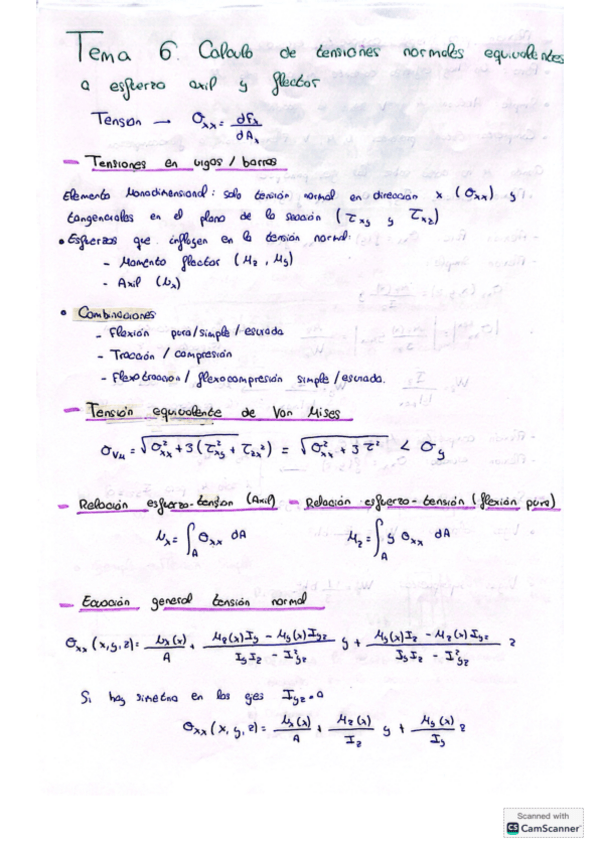 Tema 6. Calculo de tensiones normales equivalentes
a esfuerzo axil y flector
Tensión → σxx = dFx / dAx
— Tensiones en vigas / barras
Elemento Monodimensional: solo tensión normal en direccion x (σxx) y
tangenciales en el plano de la sección (τxy y τxz)
• Esfuerzos que influyen en la tensión normal:
- Momento flector (Mz, My)
- Axil (Nx)
• Combinaciones
- Flexión pura/simple/esviada
- Tracción / compresión
- Flexotraccion / flexocompresión simple/esviada.
— Tensión equivalente de Von Mises
σVM = √(σxx² + 3(τxy² + τzx²)) = √(σxx² + 3τ²) < σy
— Relación esfuerzo-tension (Axil) — Relación esfuerzo-tensión (flexión pura)
Nx = ∫A σxx dA Mz = ∫A y σxx dA
— Ecuación general tensión normal
σxx(x,y,z) = Nx(x)/A + (Mz(x)Iy - My(x)Iyz)/(IyIz - Iyz²) y + (My(x)Iz - Mz(x)Iyz)/(IyIz - Iyz²) z
Si hay simetria en los ejes Iyz = 0
σxx(x,y,z) = Nx(x)/A + Mz(x)/Iz y + My(x)/Iy z
Scanned with
CS CamScanner